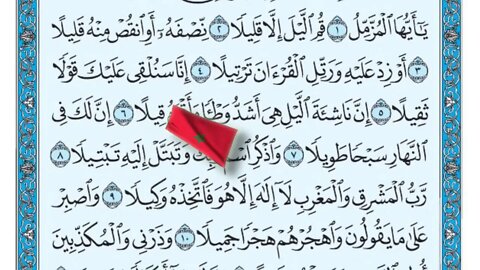 يَٰٓأَيُّهَا ٱلْمُزَّمِّلُ ١ قُمِ ٱلَّيْلَ إِلَّا قَلِيلًا ٢ نِّصْفَهُۥٓ أَوِ ٱنقُصْ مِنْهُ قَلِيلًا
٣ أَوْ زِدْ عَلَيْهِ وَرَتِّلِ ٱلْقُرْءَانَ تَرْتِيلًا ٤ إِنَّا سَنُلْقِى عَلَيْكَ قَوْلًا
ثَقِيلًا ٥ إِنَّ نَاشِئَةَ ٱلَّيْلِ هِىَ أَشَدُّ وَطْـًٔا قِيلًا ٦ إِنَّ لَكَ فِى
ٱلنَّهَارِ سَبْحًا طَوِيلًا ٧ وَٱذْكُرِ وَتَبَتَّلْ إِلَيْهِ تَبْتِيلًا ٨
رَّبُّ ٱلْمَشْرِقِ وَٱلْمَغْرِبِ لَآ إِلَٰهَ إِلَّا هُوَ فَٱتَّخِذْهُ وَكِيلًا ٩ وَٱصْبِرْ
عَلَىٰ مَا يَقُولُونَ وَٱهْجُرْهُمْ هَجْرًا جَمِيلًا ١٠ وَذَرْنِى وَٱلْمُكَذِّبِينَ